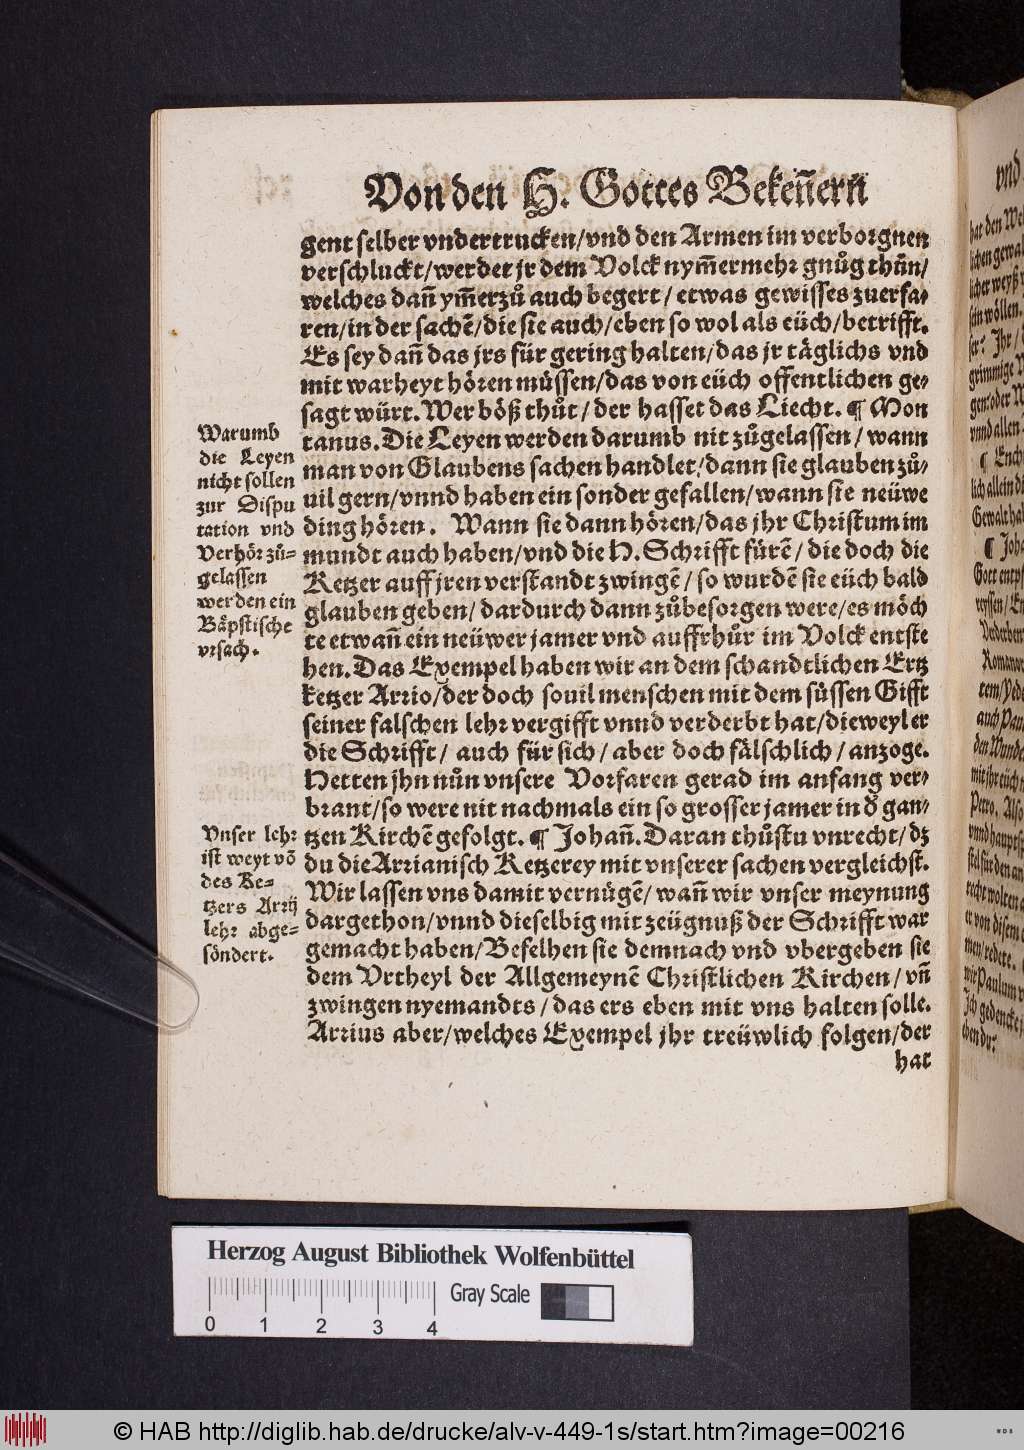 Von den H. Gottes Bekeñern
gent selber vndertrucken/vnd den Armen im verborgnen
verschluckt/werdet jr dem Volck nym̃ermehr gnůg thůn/
welches dañ ym̃erzů auch begert/etwas gewisses zuerfa-
ren/in der sachẽ/die sie auch/eben so wol als eüch/betrifft.
Es sey dañ das jrs für gering halten/das jr täglichs vnd
mit warheyt hören müssen/das von eüch offentlichen ge-
sagt würt. Wer böß thůt/der hasset das Liecht. ¶ Mon
tanus. Die Leyen werden darumb nit zůgelassen/wann
man von Glaubens sachen handlet/dann sie glauben zů-
uil gern/vnnd haben ein sonder gefallen/wann sie neüwe
ding hören. Wann sie dann hören/das jhr Christum im
mundt auch haben/vnd die H. Schrifft fürẽ/die doch die
Ketzer auff jren verstandt zwingẽ/so wurdẽ sie eüch bald
glauben geben/dardurch dann zůbesorgen were/es möch
te etwañ ein neüwer jamer vnd auffrhůr im Volck entste
hen. Das Exempel haben wir an dem schandtlichen Ertz
ketzer Arrio/der doch souil menschen mit dem süssen Gifft
seiner falschen lehr vergifft vnnd verderbt hat/dieweyl er
die Schrifft/auch für sich/aber doch fälschlich/anzoge.
Hetten jhn nůn vnsere Vorfaren gerad im anfang ver-
brant/so were nit nachmals ein so grosser jamer in d' gan-
tzen Kirchẽ gefolgt. ¶ Johañ. Daran thůstu vnrecht/dz
du die Arrianisch Ketzerey mit vnserer sachen vergleichst.
Wir lassen vns damit vernügẽ/wañ wir vnser meynung
dargethon/vnnd dieselbig mit zeügnuß der Schrifft war
gemacht haben/Befelhen sie demnach vnd vbergeben sie
dem Vrtheyl der Allgemeynẽ Christlichen Kirchen/vñ
zwingen nyemandts/das ers eben mit vns halten solle.
Arrius aber/welches Exempel jhr treüwlich folgen/der
hat
Warumb
die Leyen
nicht sollen
zur Dispu
tation vnd
Verhör zů-
gelassen
werden ein
Bäpstische
vrsach.
Vnser lehr
ist weyt võ
des Ke-
tzers Arrij
lehr abge-
söndert.
vnd
hat den
lichen
licher weyß
sein wöllen.
ser? Jhr/
grimmige
gen: oder
vnnd allen
¶
lich allein
Gewalt
¶
Gott
reyssen/
auch
den
mit jhr eüch
Petro. Also
vnnd
stel für den
recht wolten
er von disem
men/redete.
wir Paulum
Ich gedencke
eben du:
Herzog August Bibliothek Wolfenbüttel
Gray Scale
0 1 2 3 4
© HAB http://diglib.hab.de/drucke/alv-v-449-1s/start.htm?image=00216